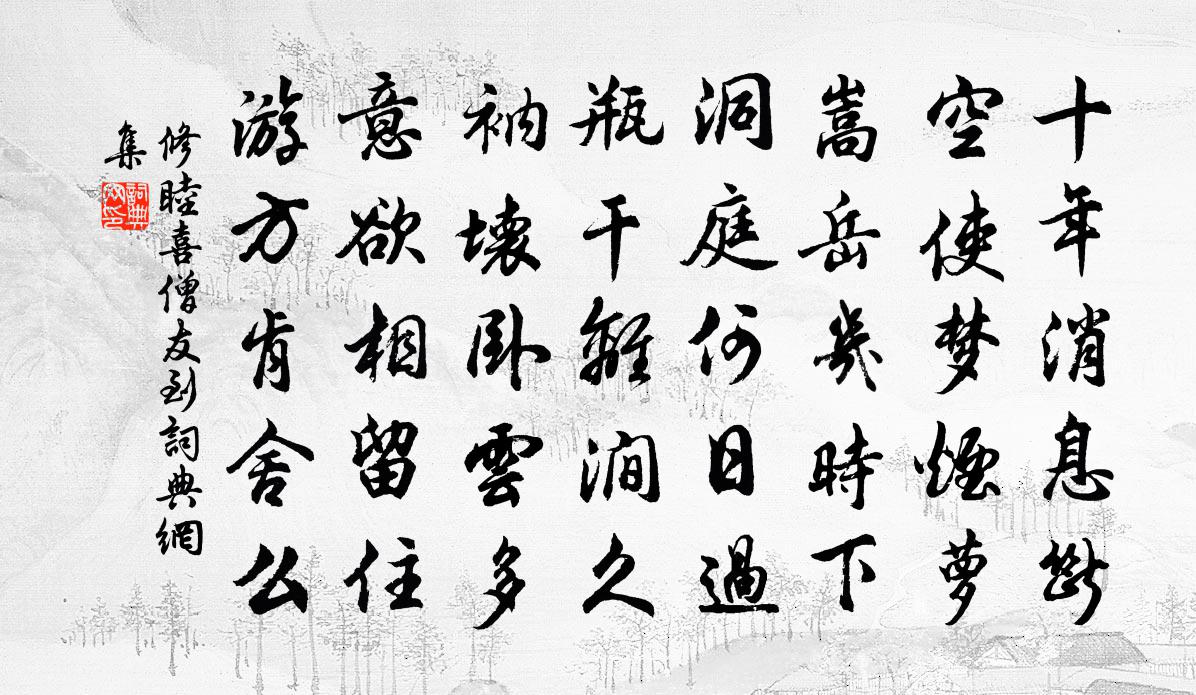 十年消息断
空使梦煙萝
嵩岳幾時下
洞庭何日過
瓶干離澗久
衲壊卧雲多
意欲相留住
游方肯舍么
修睦喜僧友到詞典網
集
詞典網印